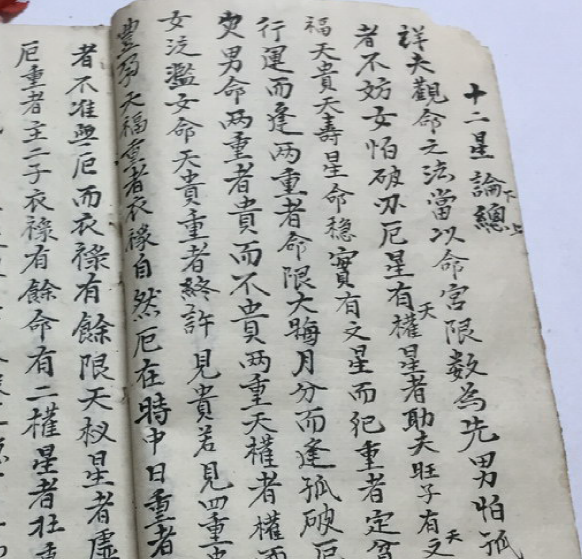 十二星論總
下
上
詳夫觀命之法當以命宮限數為先男怕孤
者不妨女怕破刃厄星有天權星者助夫旺子有天文
福天貴天壽星命穩實有文星而犯重者定貧
行運而逢兩重者命限大晦月分而逢孤破厄
男命兩重者貴而不貴兩重天權者權而
女泛濫女命天貴重者終許見貴若見四重
豐天福重者衣祿自然厄在時中日重者
者不准與厄而衣祿有餘限天星者虛
厄重者主二子衣祿有餘命有二權星者狂